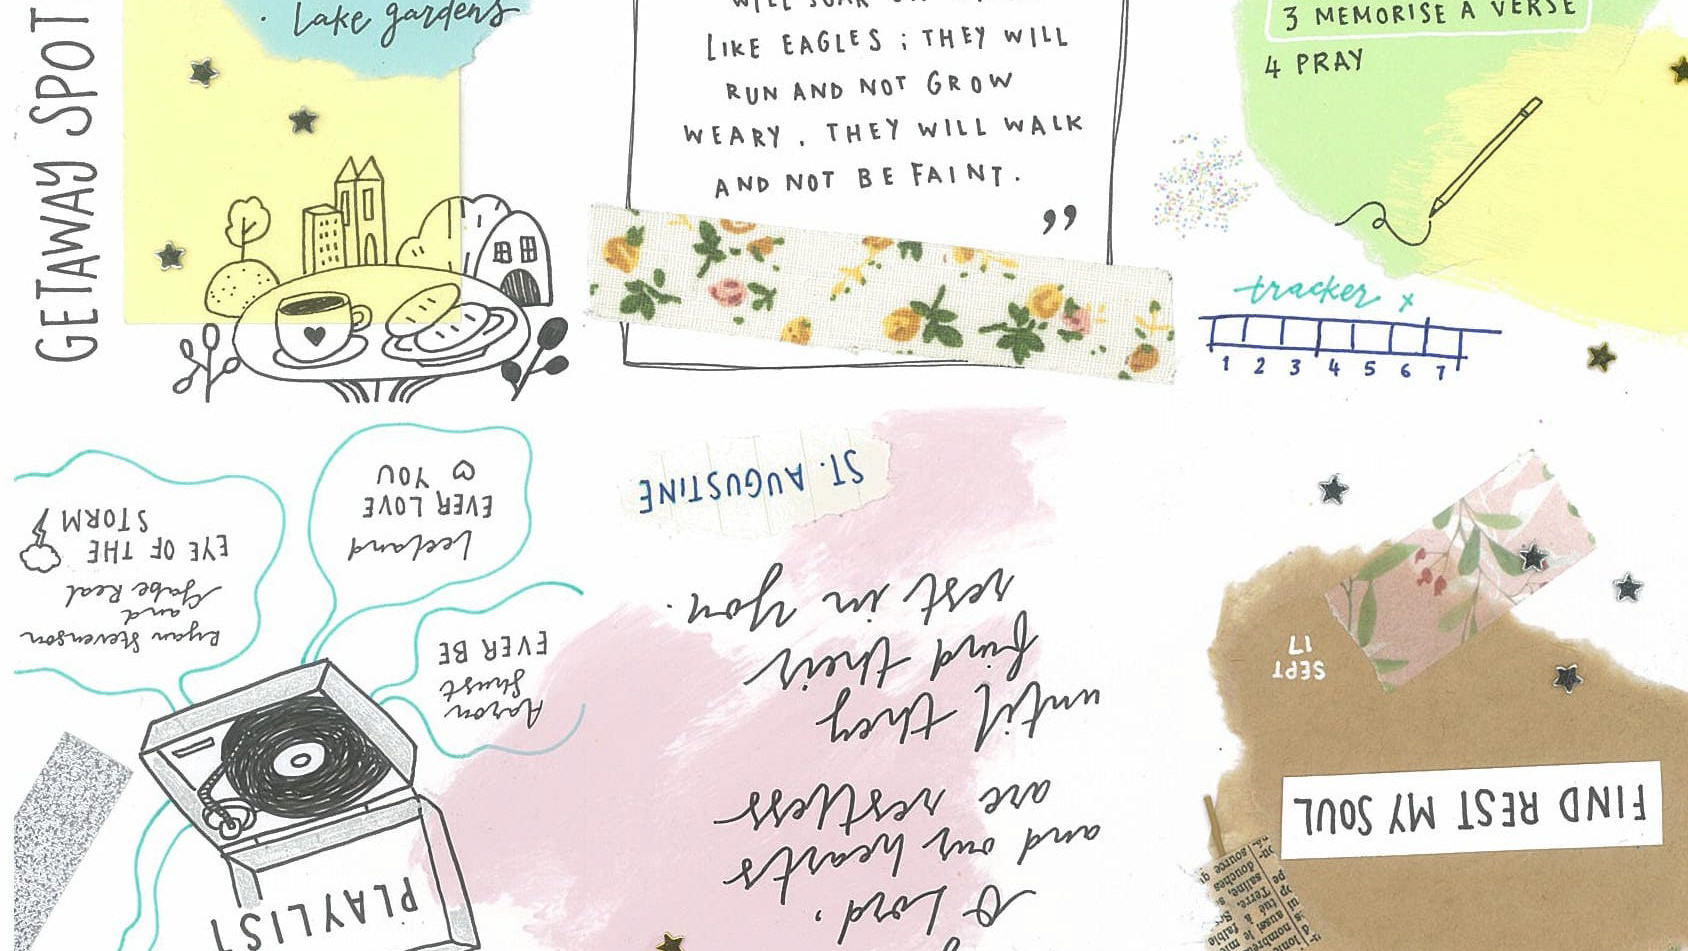 GETAWAY SPOT
Lake gardens
LIKE EAGLES ; THEY WILL
RUN AND NOT GROW
WEARY , THEY WILL WALK
AND NOT BE FAINT .
”
3 MEMORISE A VERSE
4 PRAY
tracker x
1 2 3 4 5 6 7
PLAYLIST
Aaron
Shust
EVER BE
Leeland
EVER LOVE
YOU
Ryan Stevenson
and
Gabe Real
EYE OF THE
STORM
O Lord,
and our hearts
are restless
until they
find their
rest in you.
ST. AUGUSTINE
FIND REST MY SOUL
SEPT
17